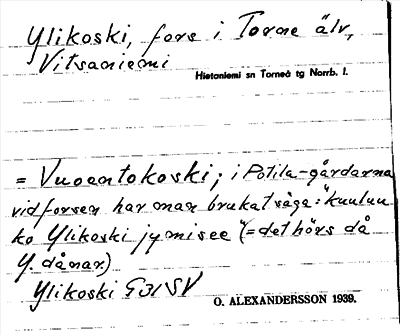 Ylikoski, fors i Torne älv,
Vitsaniemi
Hietaniemi sn Torneå tg Norrb. l.
= Vuoentokoski; i Potila-gårdarna
vid forsen har man brukat säga: "kuuluu
ko Ylikoski jymisee" (= det hörs då
Y. dånar)
Ylikoski G31 SV
O. ALEXANDERSSON 1939.